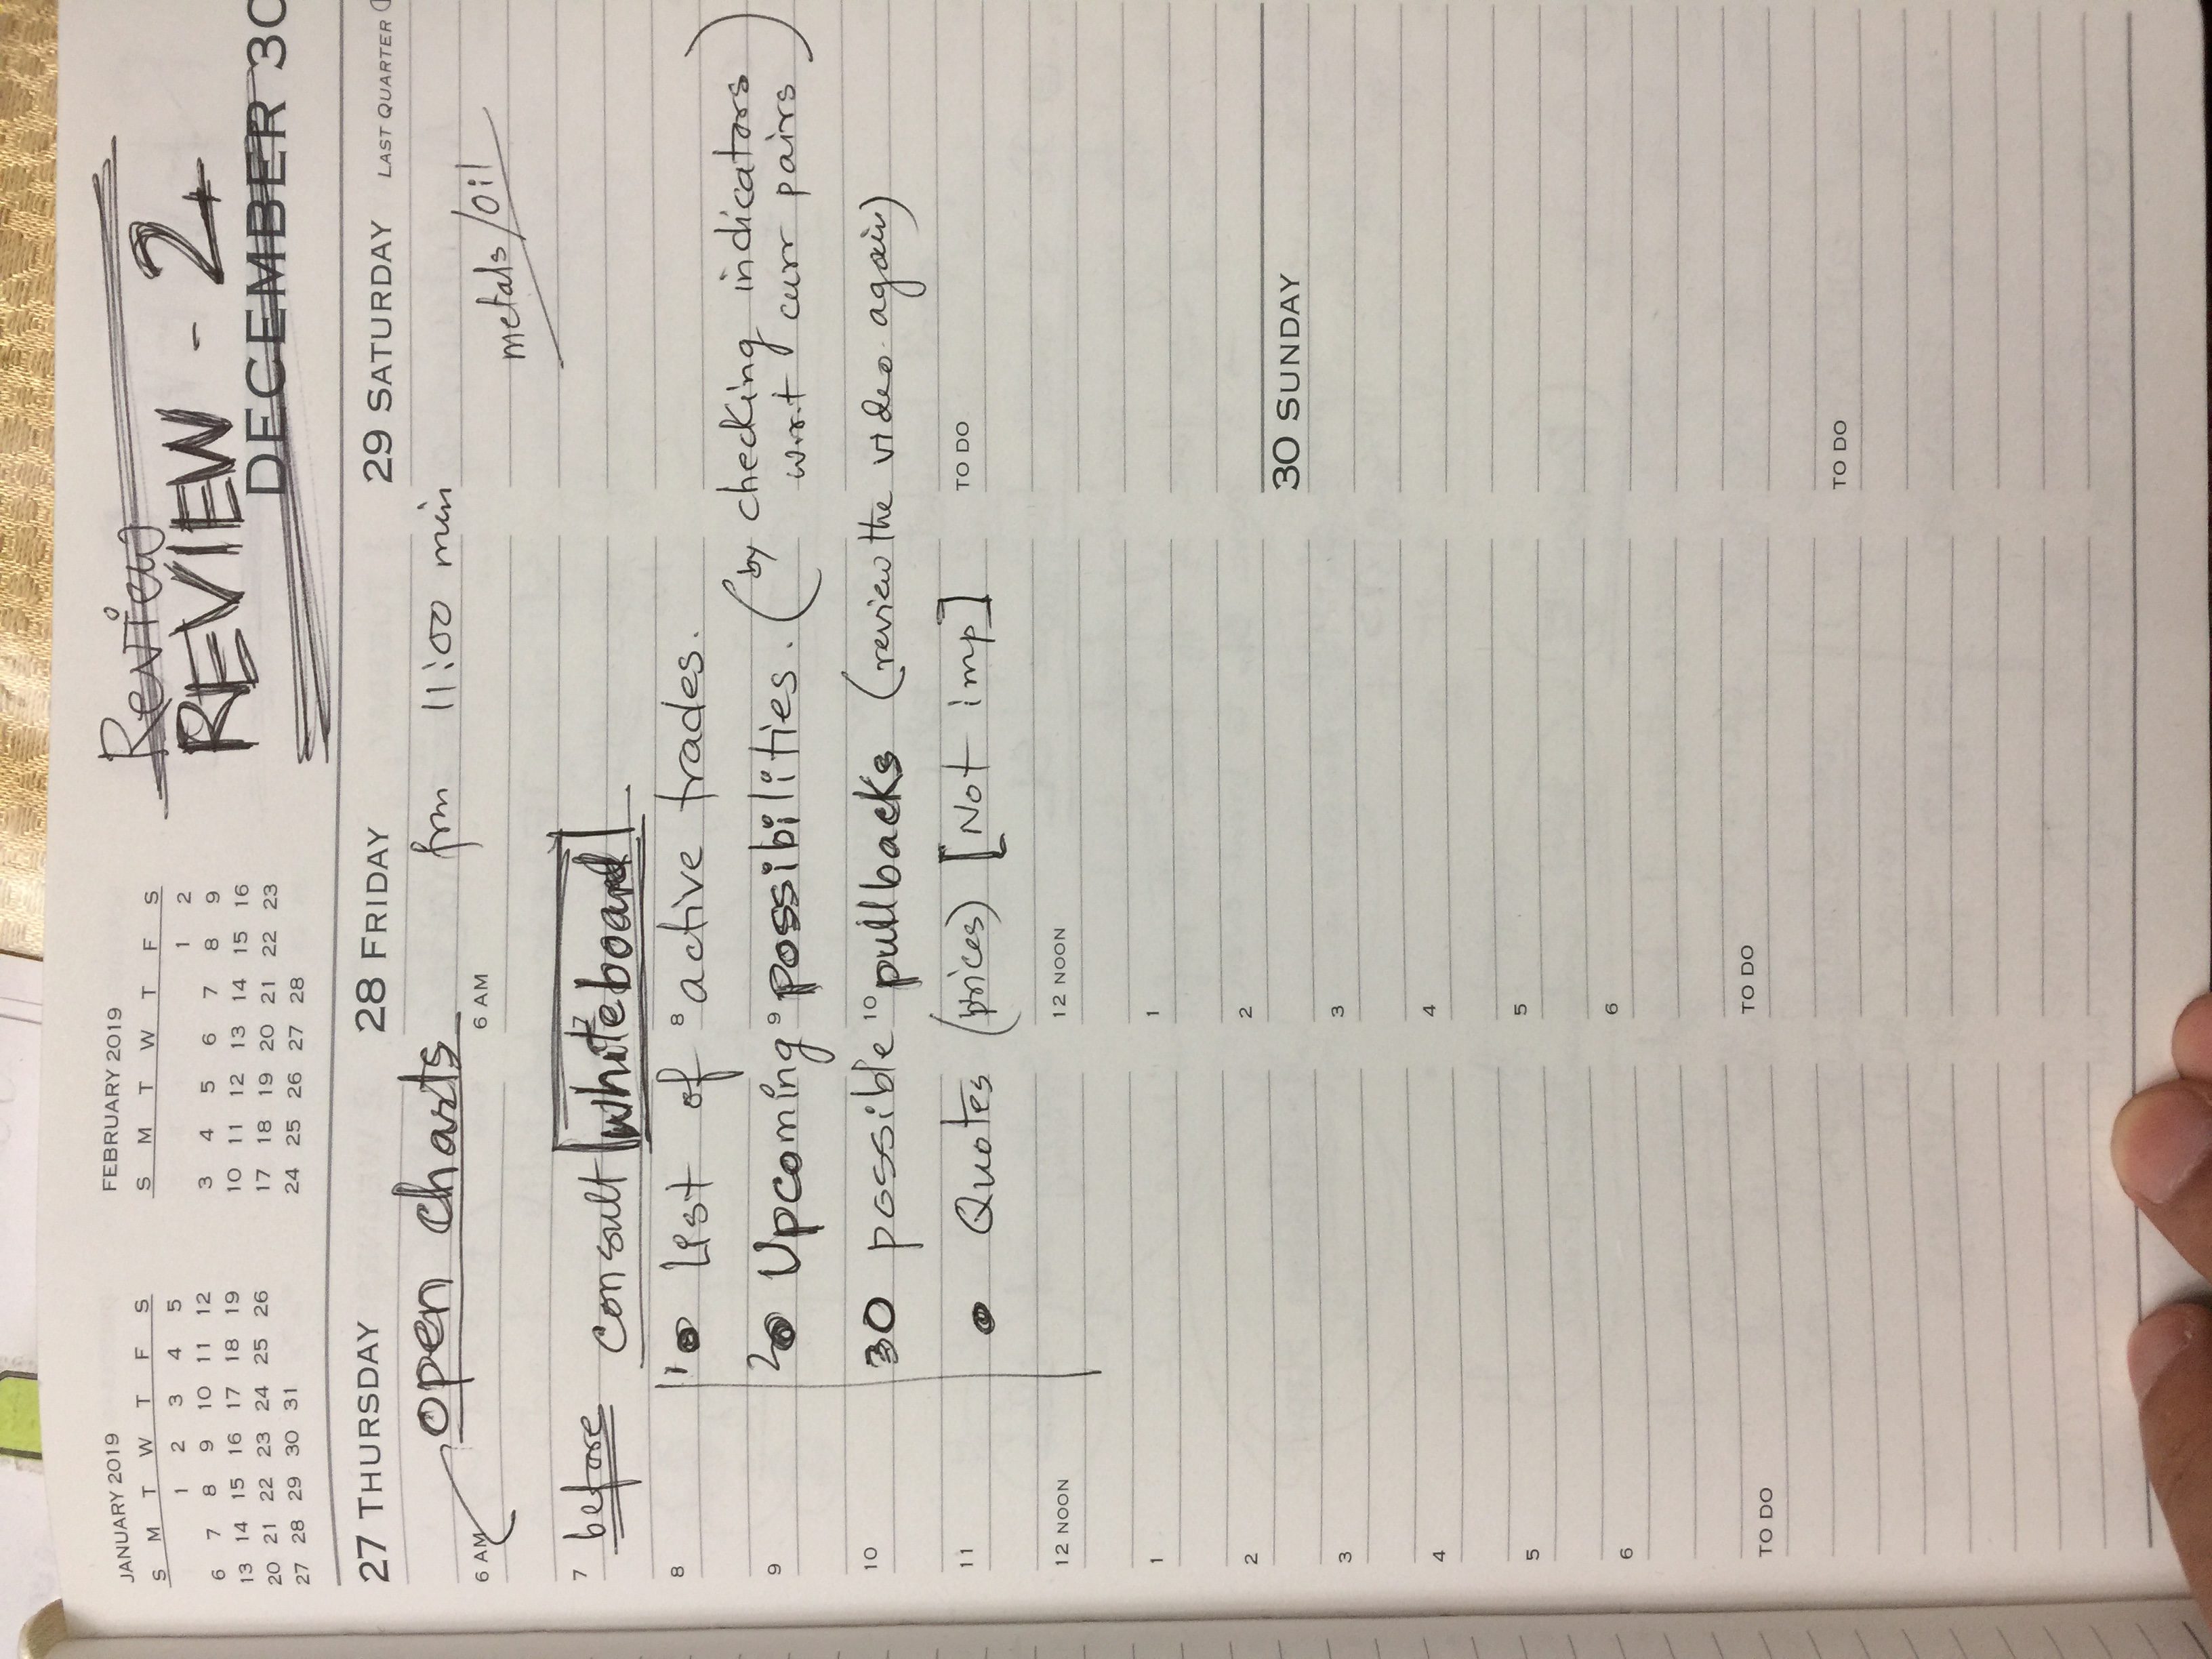 JANUARY 2019
S M T W T F S
1 2 3 4 5
6 7 8 9 10 11 12
13 14 15 16 17 18 19
20 21 22 23 24 25 26
27 28 29 30 31
FEBRUARY 2019
S M T W T F S
1 2
3 4 5 6 7 8 9
10 11 12 13 14 15 16
17 18 19 20 21 22 23
24 25 26 27 28
Review
REVIEW - 2
DECEMBER 30
27 THURSDAY 28 FRIDAY 29 SATURDAY LAST QUARTER
open charts frm 11:00 min
6 AM 6 AM
metals/oil
7 before consult whiteboard 7
8 1 List of 8 active trades.
9 2 Upcoming 9 possibilities. (by checking indicators
w.r.t curr pairs)
10 30 possible 10 pullbacks (review the video again)
11 • Quotes (prices) [Not imp] TO DO
12 NOON 12 NOON
1 1
2 2
30 SUNDAY
3 3
4 4
5 5
6 6
TO DO TO DO
TO DO